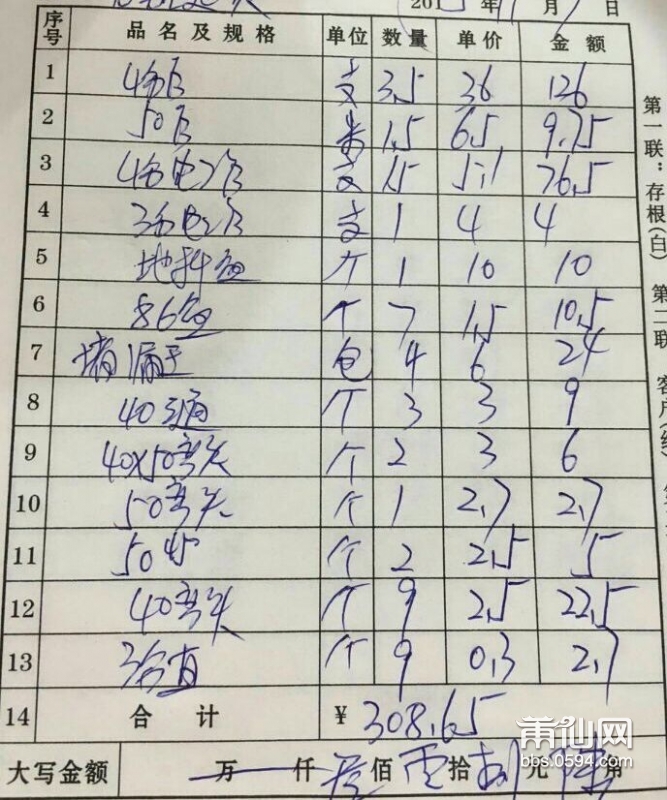 201 年 11 月 7 日
序号 品名及规格 单位 数量 单价 金额
1 4分管 支 3.5 36 126
2 50管 米 1.5 6.5 9.75
3 4分电管 支 15 5.1 76.5
4 3分电管 支 1 4 4
5 地插盒 个 1 10 10
6 86盒 个 7 1.5 10.5
7 堵漏王 包 4 6 24
8 40三通 个 3 3 9
9 40×50弯头 个 2 3 6
10 50弯头 个 1 2.7 2.7
11 5045° 个 2 2.5 5
12 40弯头 个 9 2.5 22.5
13 3分直 个 9 0.3 2.7
14 合计 ¥ 308.65
大写金额 万 仟 叁 佰 零 拾 捌 元 角
第一联：存根(白) 第二联 客户(红)
莆仙网
bbs.0594.com